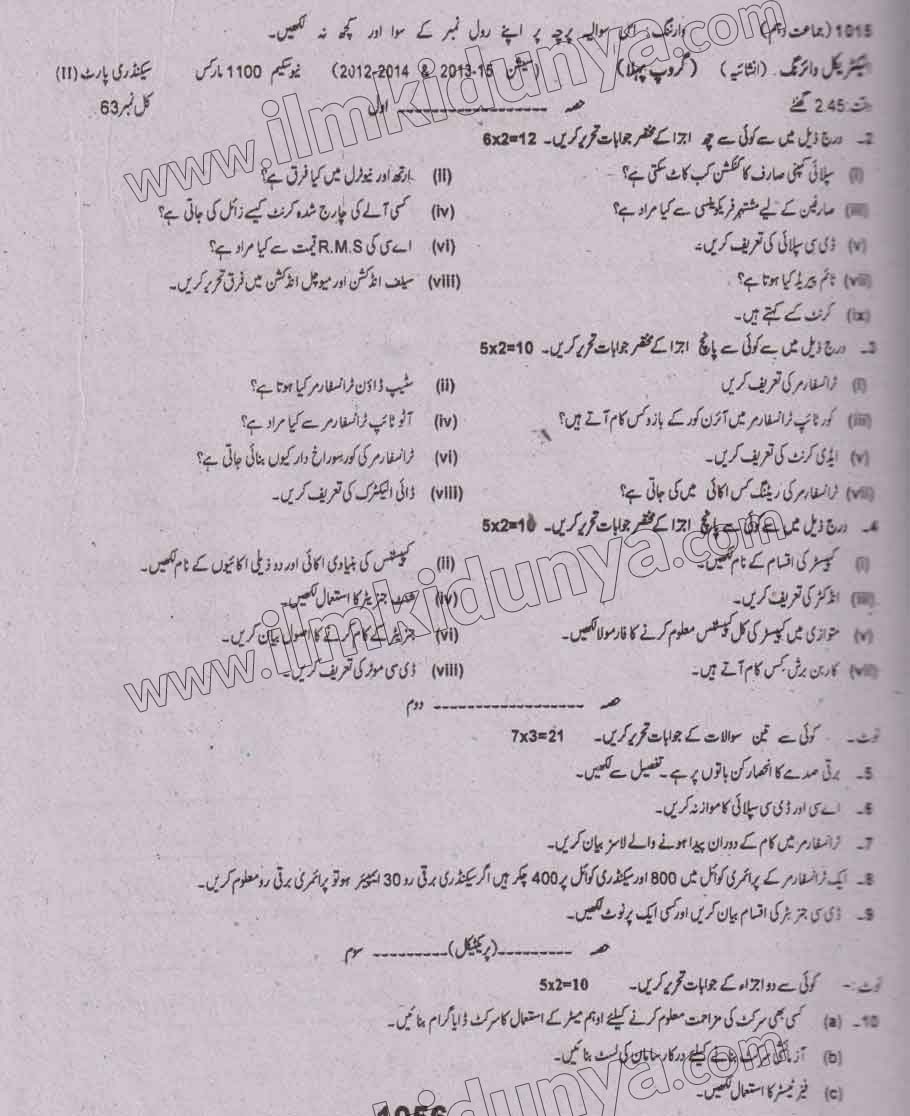 1015 (جماعت دہم) وارننگ: اس سوالیہ پرچہ پر اپنے رول نمبر کے سوا اور کچھ نہ لکھیں۔
الیکٹریکل وائرنگ (انشائیہ) (گروپ پہلا) (سیشن 2013-15 & 2012-2014) نیو سکیم 1100 مارکس سیکنڈری پارٹ (II)
وقت 2.45 گھنٹے حصہ ------------------ اول کل نمبر 63
2۔ درج ذیل میں سے کوئی سے چھ اجزا کے مختصر جوابات تحریر کریں۔ 6x2=12
(i) سپلائی کمپنی صارف کا کنکشن کب کاٹ سکتی ہے؟ (ii) ارتھ اور نیوٹرل میں کیا فرق ہے؟
(iii) صارفین کے لیے مشتہر فریکوئنسی سے کیا مراد ہے؟ (iv) کسی آلے کی چارج شدہ کرنٹ کیسے زائل کی جاتی ہے؟
(v) ڈی سی سپلائی کی تعریف کریں۔ (vi) اے سی کی R.M.S قیمت سے کیا مراد ہے؟
(vii) ٹائم پیریڈ کیا ہوتا ہے؟ (viii) سیلف انڈکشن اور میوچل انڈکشن میں فرق تحریر کریں۔
(ix) کرنٹ کسے کہتے ہیں۔
3۔ درج ذیل میں سے کوئی سے پانچ اجزا کے مختصر جوابات تحریر کریں۔ 5x2=10
(i) ٹرانسفارمر کی تعریف کریں (ii) سٹیپ ڈاؤن ٹرانسفارمر کیا ہوتا ہے؟
(iii) کور ٹائپ ٹرانسفارمر میں آئرن کور کے بازو کس کام آتے ہیں؟ (iv) آٹو ٹائپ ٹرانسفارمر سے کیا مراد ہے؟
(v) ایڈی کرنٹ کی تعریف کریں۔ (vi) ٹرانسفارمر کی کور سوراخ دار کیوں بنائی جاتی ہے؟
(vii) ٹرانسفارمر کی ریٹنگ کس اکائی میں کی جاتی ہے؟ (viii) ڈائی الیکٹرک کی تعریف کریں۔
4۔ درج ذیل میں سے کوئی سے پانچ اجزا کے مختصر جوابات تحریر کریں۔ 5x2=10
(i) کپیسٹر کی اقسام کے نام لکھیں۔ (ii) کپیسٹنس کی بنیادی اکائی اور دو ذیلی اکائیوں کے نام لکھیں۔
(iii) انڈکٹر کی تعریف کریں۔ (iv) شنٹ جنریٹر کا استعمال لکھیں۔
(v) متوازی میں کپیسٹر کی کل کپیسٹنس معلوم کرنے کا فارمولا لکھیں۔ (vi) جنریٹر کے کام کرنے کا اصول بیان کریں۔
(vii) کاربن برش کس کام آتے ہیں۔ (viii) ڈی سی موٹر کی تعریف کریں۔
حصہ ------------------ دوم
نوٹ۔ کوئی سے تین سوالات کے جوابات تحریر کریں۔ 7x3=21
5۔ برقی صدمے کا انحصار کن باتوں پر ہے۔ تفصیل سے لکھیں۔
6۔ اے سی اور ڈی سی سپلائی کا موازنہ کریں۔
7۔ ٹرانسفارمر میں کام کے دوران پیدا ہونے والے لاسز بیان کریں۔
8۔ ایک ٹرانسفارمر کے پرائمری کوائل میں 800 اور سیکنڈری کوائل پر 400 چکر ہیں اگر سیکنڈری برقی رو 30 ایمپیئر ہو تو پرائمری برقی رو معلوم کریں۔
9۔ ڈی سی جنریٹر کی اقسام بیان کریں اور کسی ایک پر نوٹ لکھیں۔
حصہ ---------(پریکٹیکل)--------- سوم
نوٹ:- کوئی سے دو اجزاء کے جوابات تحریر کریں۔ 5x2=10
10۔ (a) کسی بھی سرکٹ کی مزاحمت معلوم کرنے کیلئے اوہم میٹر کے استعمال کا سرکٹ ڈایاگرام بنائیں۔
(b) آزمائشی سرکٹ بنانے کیلئے درکار سامان کی لسٹ بنائیں۔
(c) فیز ٹیسٹر کا استعمال لکھیں۔
www.ilmkidunya.com
www.ilmkidunya.com